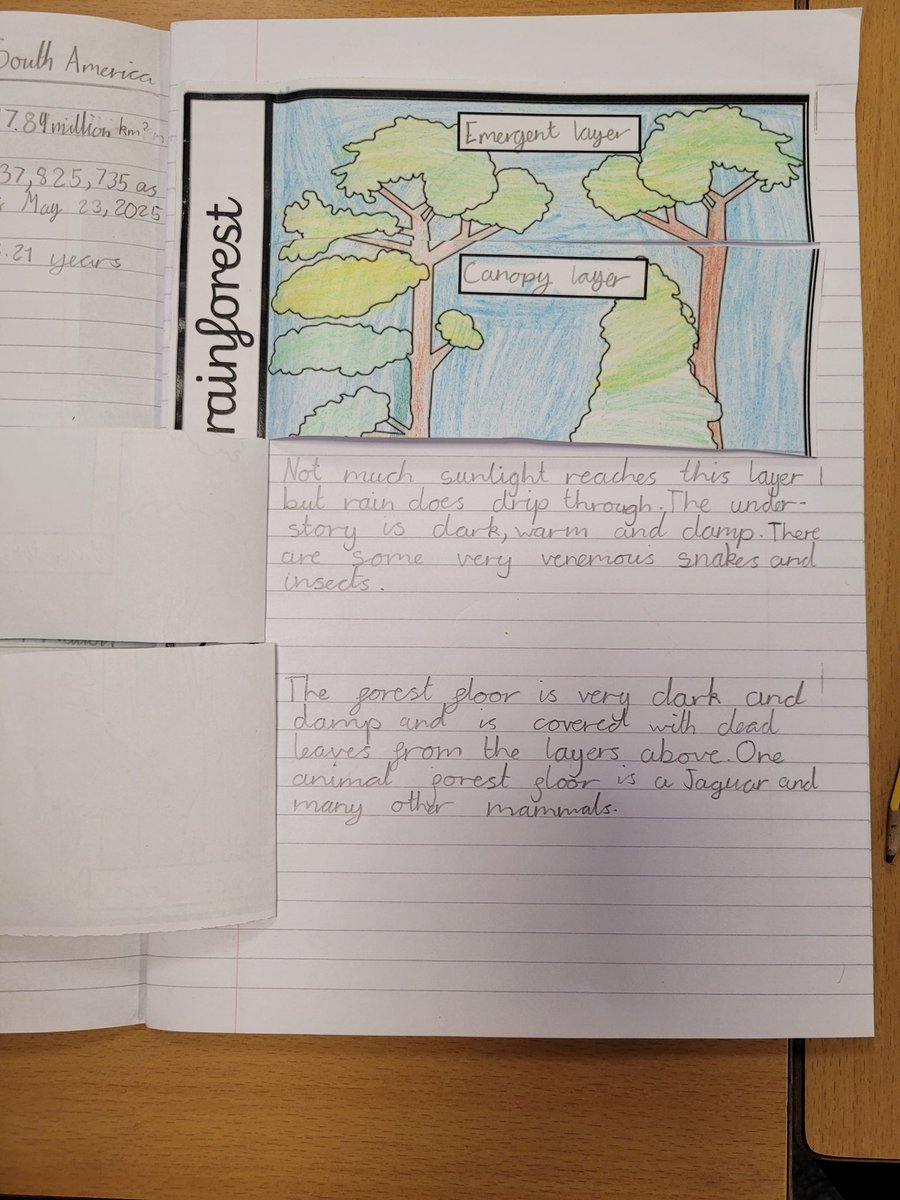 South America
7.84 million km²
37,825,735 as
May 23, 2025
.21 years
rainforest
Emergent layer
Canopy layer
Not much sunlight reaches this layer
but rain does drip through. The under-
story is dark, warm and damp. There
are some very venemous snakes and
insects.
The forest floor is very dark and
damp and is covered with dead
leaves from the layers above. One
animal forest floor is a Jaguar and
many other mammals.